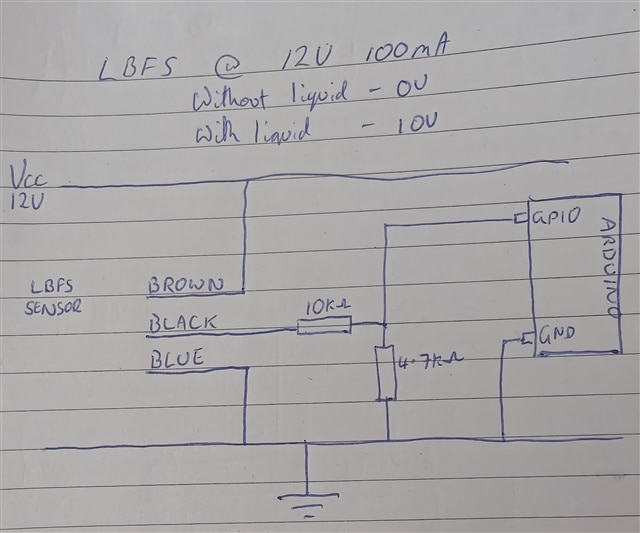 LBFS @ 12V 100mA
Without liquid - 0V
With liquid - 10V
Vcc
12V
LBFS
SENSOR
BROWN
BLACK
BLUE
10KΩ
4.7KΩ
GPIO
GND
ARDUINO